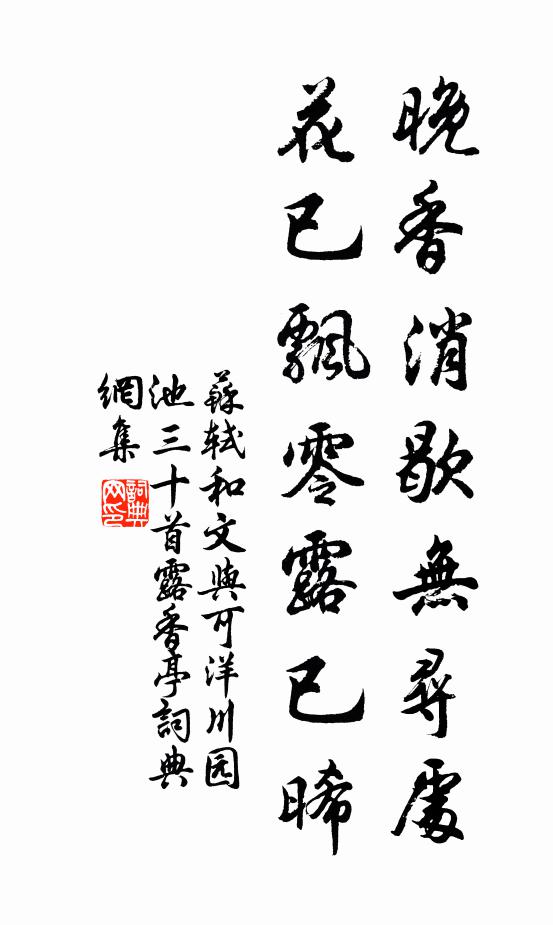 晚香消歇無尋處
花已飄零露已晞
蘇軾和文與可洋川园
池三十首露香亭詞典
網集
詞典
网印